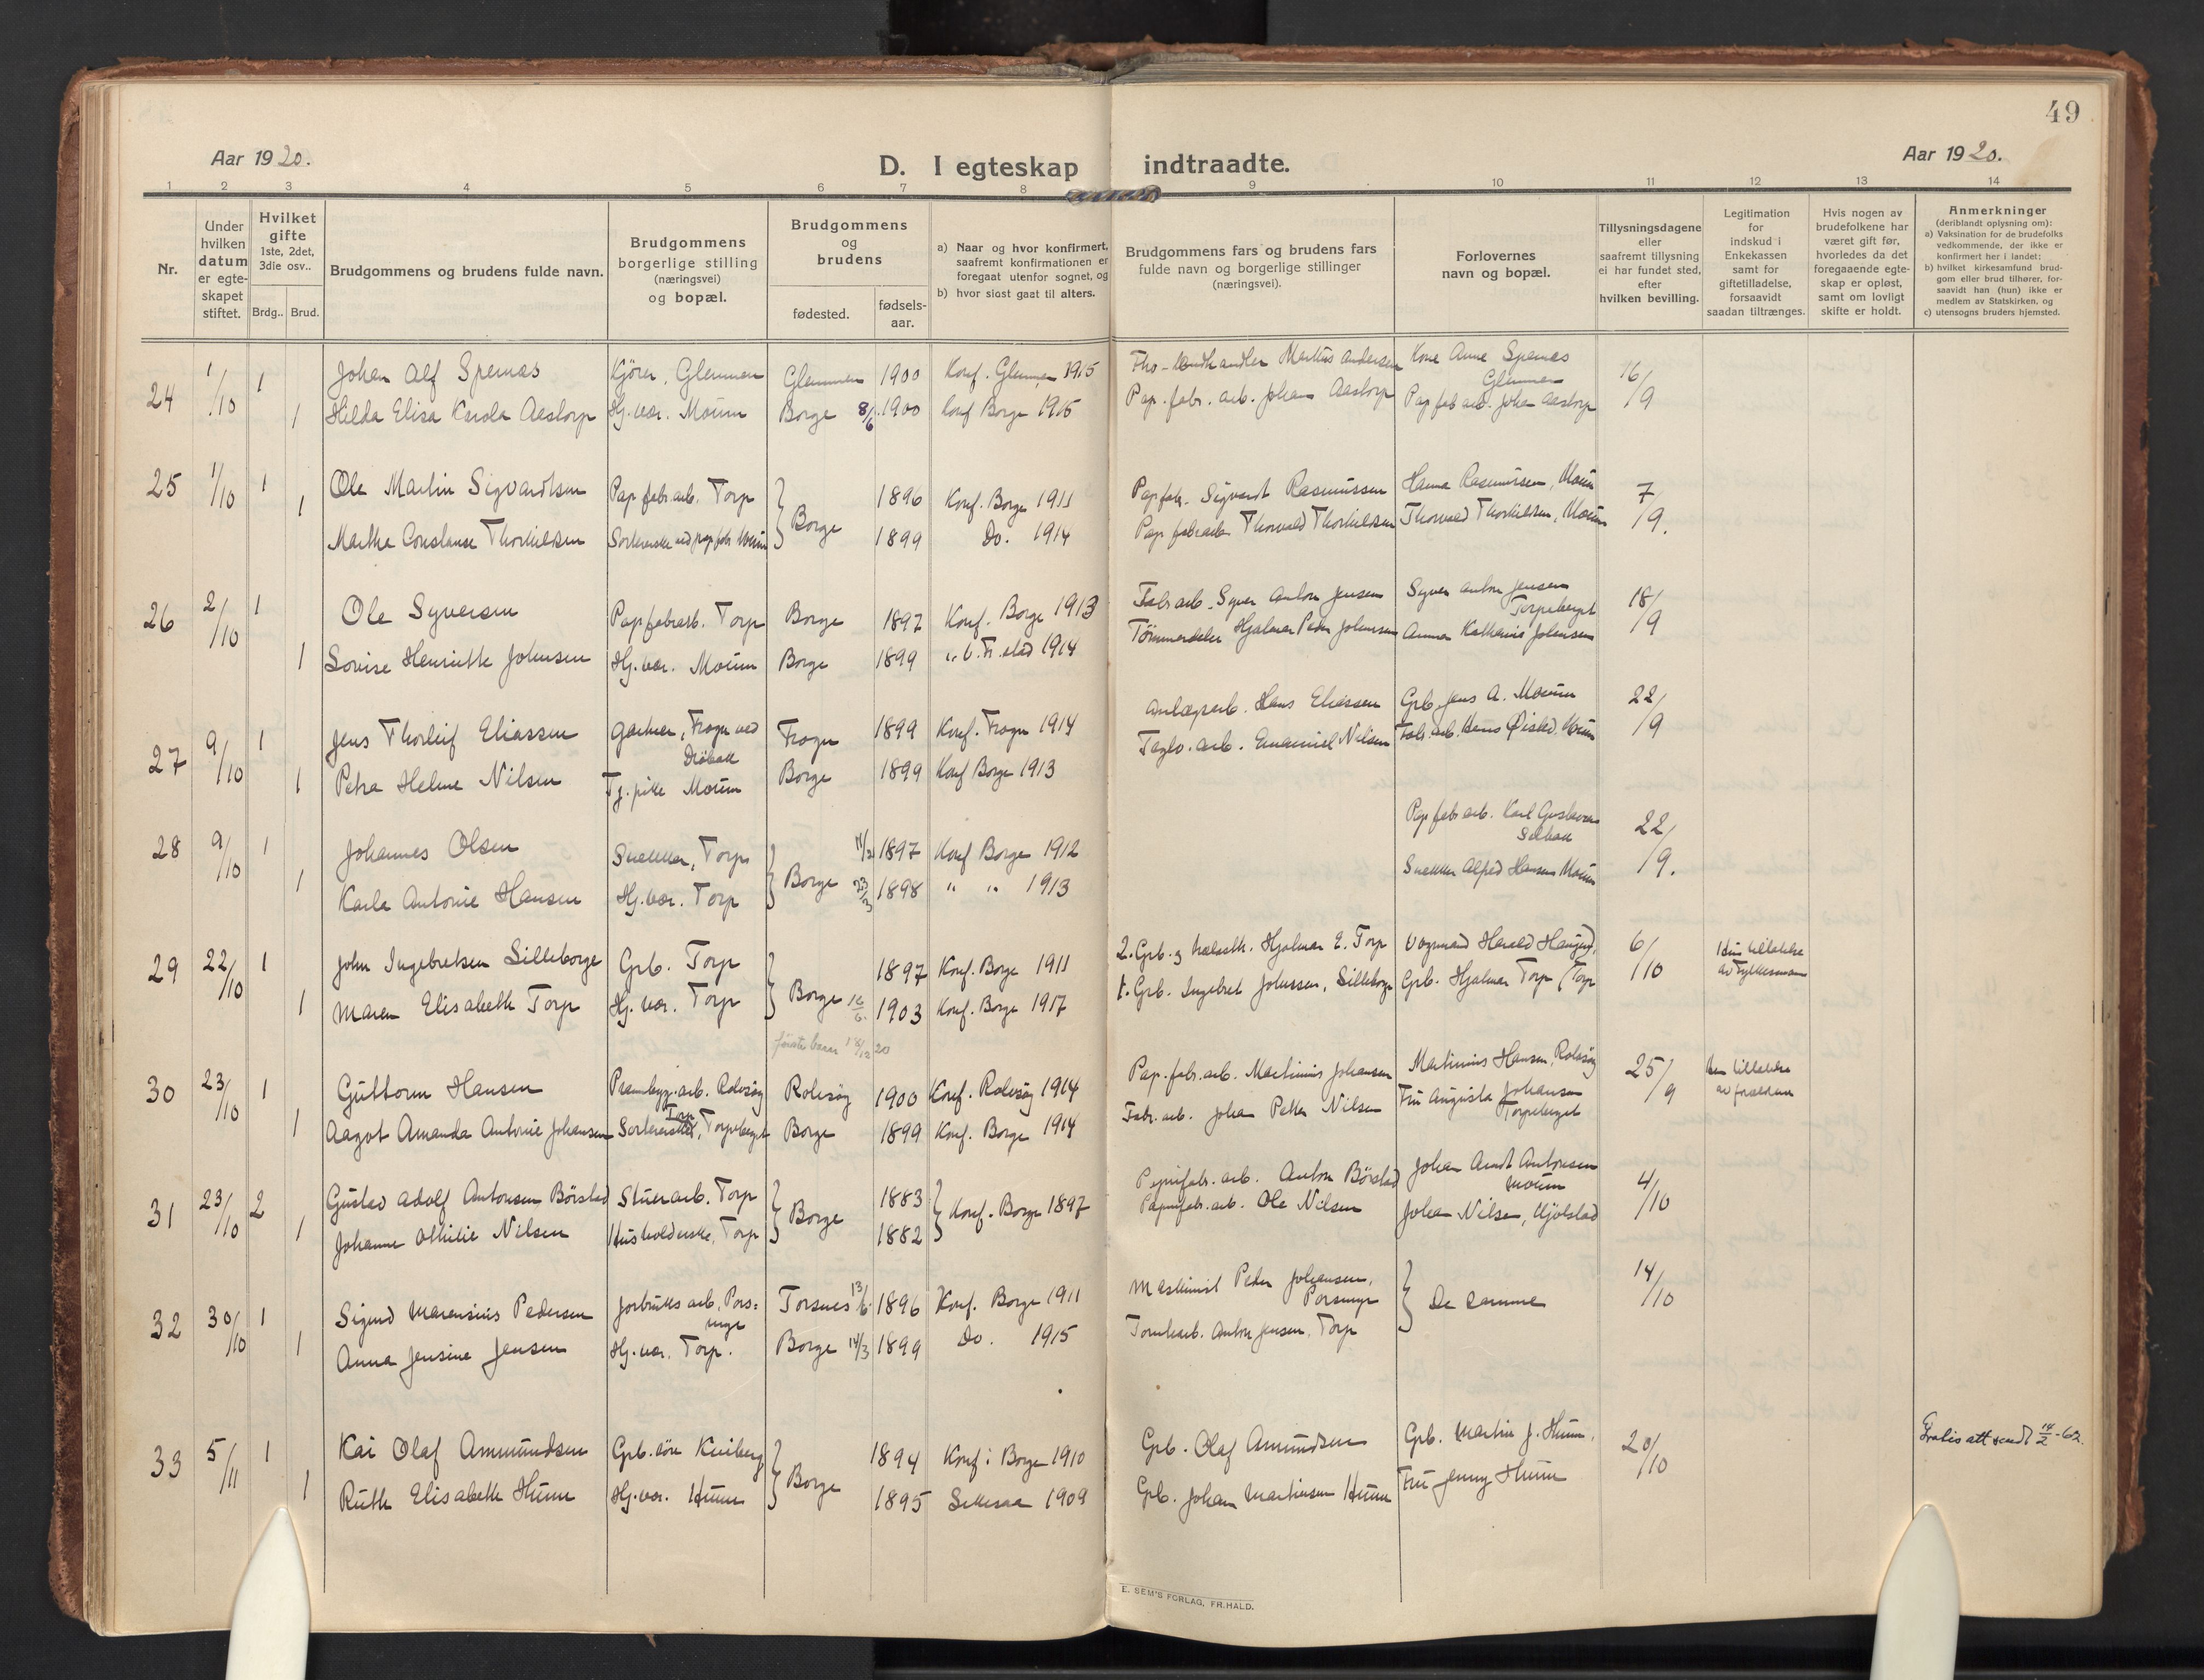 49
Aar 1920.
D. I egteskap indtraadte.
Aar 1920.
1 2 3 4 5 6 7 8 9 10 11 12 13 14
Nr.
Under hvilken datum er egte-skapet stiftet.
Hvilket gifte 1ste, 2det, 3die osv..
Brdg.. Brud.
Brudgommens og brudens fulde navn.
Brudgommens borgerlige stilling (næringsvei) og bopæl.
Brudgommens og brudens
fødested.
fødsels-aar.
a) Naar og hvor konfirmert, saafremt konfirmationen er foregaat utenfor sognet, og
b) hvor sidst gaat til alters.
Brudgommens fars og brudens fars fulde navn og borgerlige stillinger (næringsvei).
Forlovernes navn og bopæl.
Tillysningsdagene eller saafremt tillysning ei har fundet sted, efter hvilken bevilling.
Legitimation for indskud i Enkekassen samt for giftetilladelse, forsaavidt saadan tiltrænges.
Hvis nogen av brudefolkene har været gift før, hvorledes da det foregaaende egte-skap er opløst, samt om lovligt skifte er holdt.
Anmerkninger (deriblandt oplysning om):
a) Vaksination for de brudefolks vedkommende, der ikke er konfirmert her i landet;
b) hvilket kirkesamfund brud-gom eller brud tilhører, for-saavidt han (hun) ikke er medlem av Statskirken, og
c) utensogns bruders hjemsted.
24 1/10 1 Johan Alf Spernæs Kjører, Glemmen Glemmen 1900 Konf. Glemmen 1915 Markus Andersen Kone Anne Spernæs Glemmen 16/9
1 Hilda Elisa Karola Aastorp Hj. vær. Moum Borge 8/6 1900 konf Borge 1915 Pap. fabr. arb. Johan Aastorp Pap fab arb. Johan Aastorp
25 1/10 1 Ole Martin Sigvardtsen Pap fabr arb. Torp Borge 1896 Konf. Borge 1911 Papfabr. Sigvardt Rasmussen Hanna Rasmussen, Moum 7/9.
1 Martha Constanse Thorkildsen Sorterske ved papfabr Moum 1899 Do. 1914 Pap fabrarb. Thorvald Thorkildsen Thorvald Thorkildsen, Moum
26 2/10 1 Ole Syversen Papfabrarb. Torp Borge 1897 Konf. Borge 1913 Fabr arb. Syver Anton Jensen Syver Anton Jensen Torpeberget 18/9
1 Lovise Henriette Johnsen Hj. vær. Moum Borge 1899 1914 Tømmerdeler Hjalmar Peder Johansen Anna Kathrine Johansen
27 9/10 1 Jens Thorleif Eliassen Gartner, Frogn ved Drøbak Frogn 1899 Konf. Frogn 1914 Anlægsarb. Hans Eliassen Grb. Jens A. Moum 22/9
1 Petra Helene Nilsen Tj. pike Moum Borge 1899 Konf Borge 1913 Teglv. arb. Emanuel Nilsen Fabr. arb. Hans Moum
28 9/10 1 Johannes Olsen Snekker, Torp Borge 1897 Konf Borge 1912 Pap fabr arb. Karl Gustavsen Selbak 22/9.
1 Karla Antonie Hansen Hj. vær. Torp 23/3 1898 " " 1913 Snekker Alfred Hansen Moum
29 22/10 1 John Ingebretsen Silleborge Grb. Torp Borge 1897 Konf. Borge 1911 2. Grb. og Hjalmar E. Torp Harald 6/10 tilladelse av Fylkesmann
1 Maren Elisabeth Torp Hj. vær. Torp 16/6. 1903 Konf. Borge 1917 1. Grb. Ingebret Johnssen, Silleborge Grb. Hjalmar Torp (Torp
første barn 18/12 20
30 23/10 1 Guttorm Hansen Prambygg. arb. Rolvsøy Rolvsøy 1900 Konf. Rolvsøy 1914 Pap. fabr. arb. Martinius Johansen Martinius Hansen, Rolvsøy 25/9 tilladelse av foreldrene
1 Aagot Amanda Antonie Johansen Torp, Torpeberget Borge 1899 Konf. Borge 1914 Fabr. arb. Johan Petter Nilsen Fru Augusta Johansen Torpeberget
31 23/10 2 Gustav Adolf Antonsen Børstad Stuerarb. Torp Borge 1883 Konf. Borge 1897 Papirfabr. arb. Anton Børstad Johan Arndt Antonsen Moum 4/10
1 Johanne Othilie Nilsen Husholderske, Torp 1882 Papirfabr. arb. Ole Nilsen Johan Nilsen, Kjølstad
32 30/10 1 Sigurd Marensius Pedersen Jordbruks arb. Pors= Torsnes 13/6 1896 Konf. Borge 1911 Maskinist Peder Johansen, De samme 14/10
1 Anna Jensine Jensen Hj. vær. Torp. Borge 14/3 1899 Do. 1915 Tomtearb. Anton Jensen, Torp
33 5/11 1 Kai Olaf Ammundsen Grb. søn Kniberg Borge 1894 Konf: Borge 1910 Grb. Olaf Amundsen Grb. Martin J. Hunn, 20/10 Gratis att sendt 14/2-62.
1 Ruth Elisabeth Hunn Hj. vær. Hunn 1895 1909 Grb. Johan Martinsen Hunn Fru Jenny Hunn
E. SEM'S FORLAG, FR.HALD.